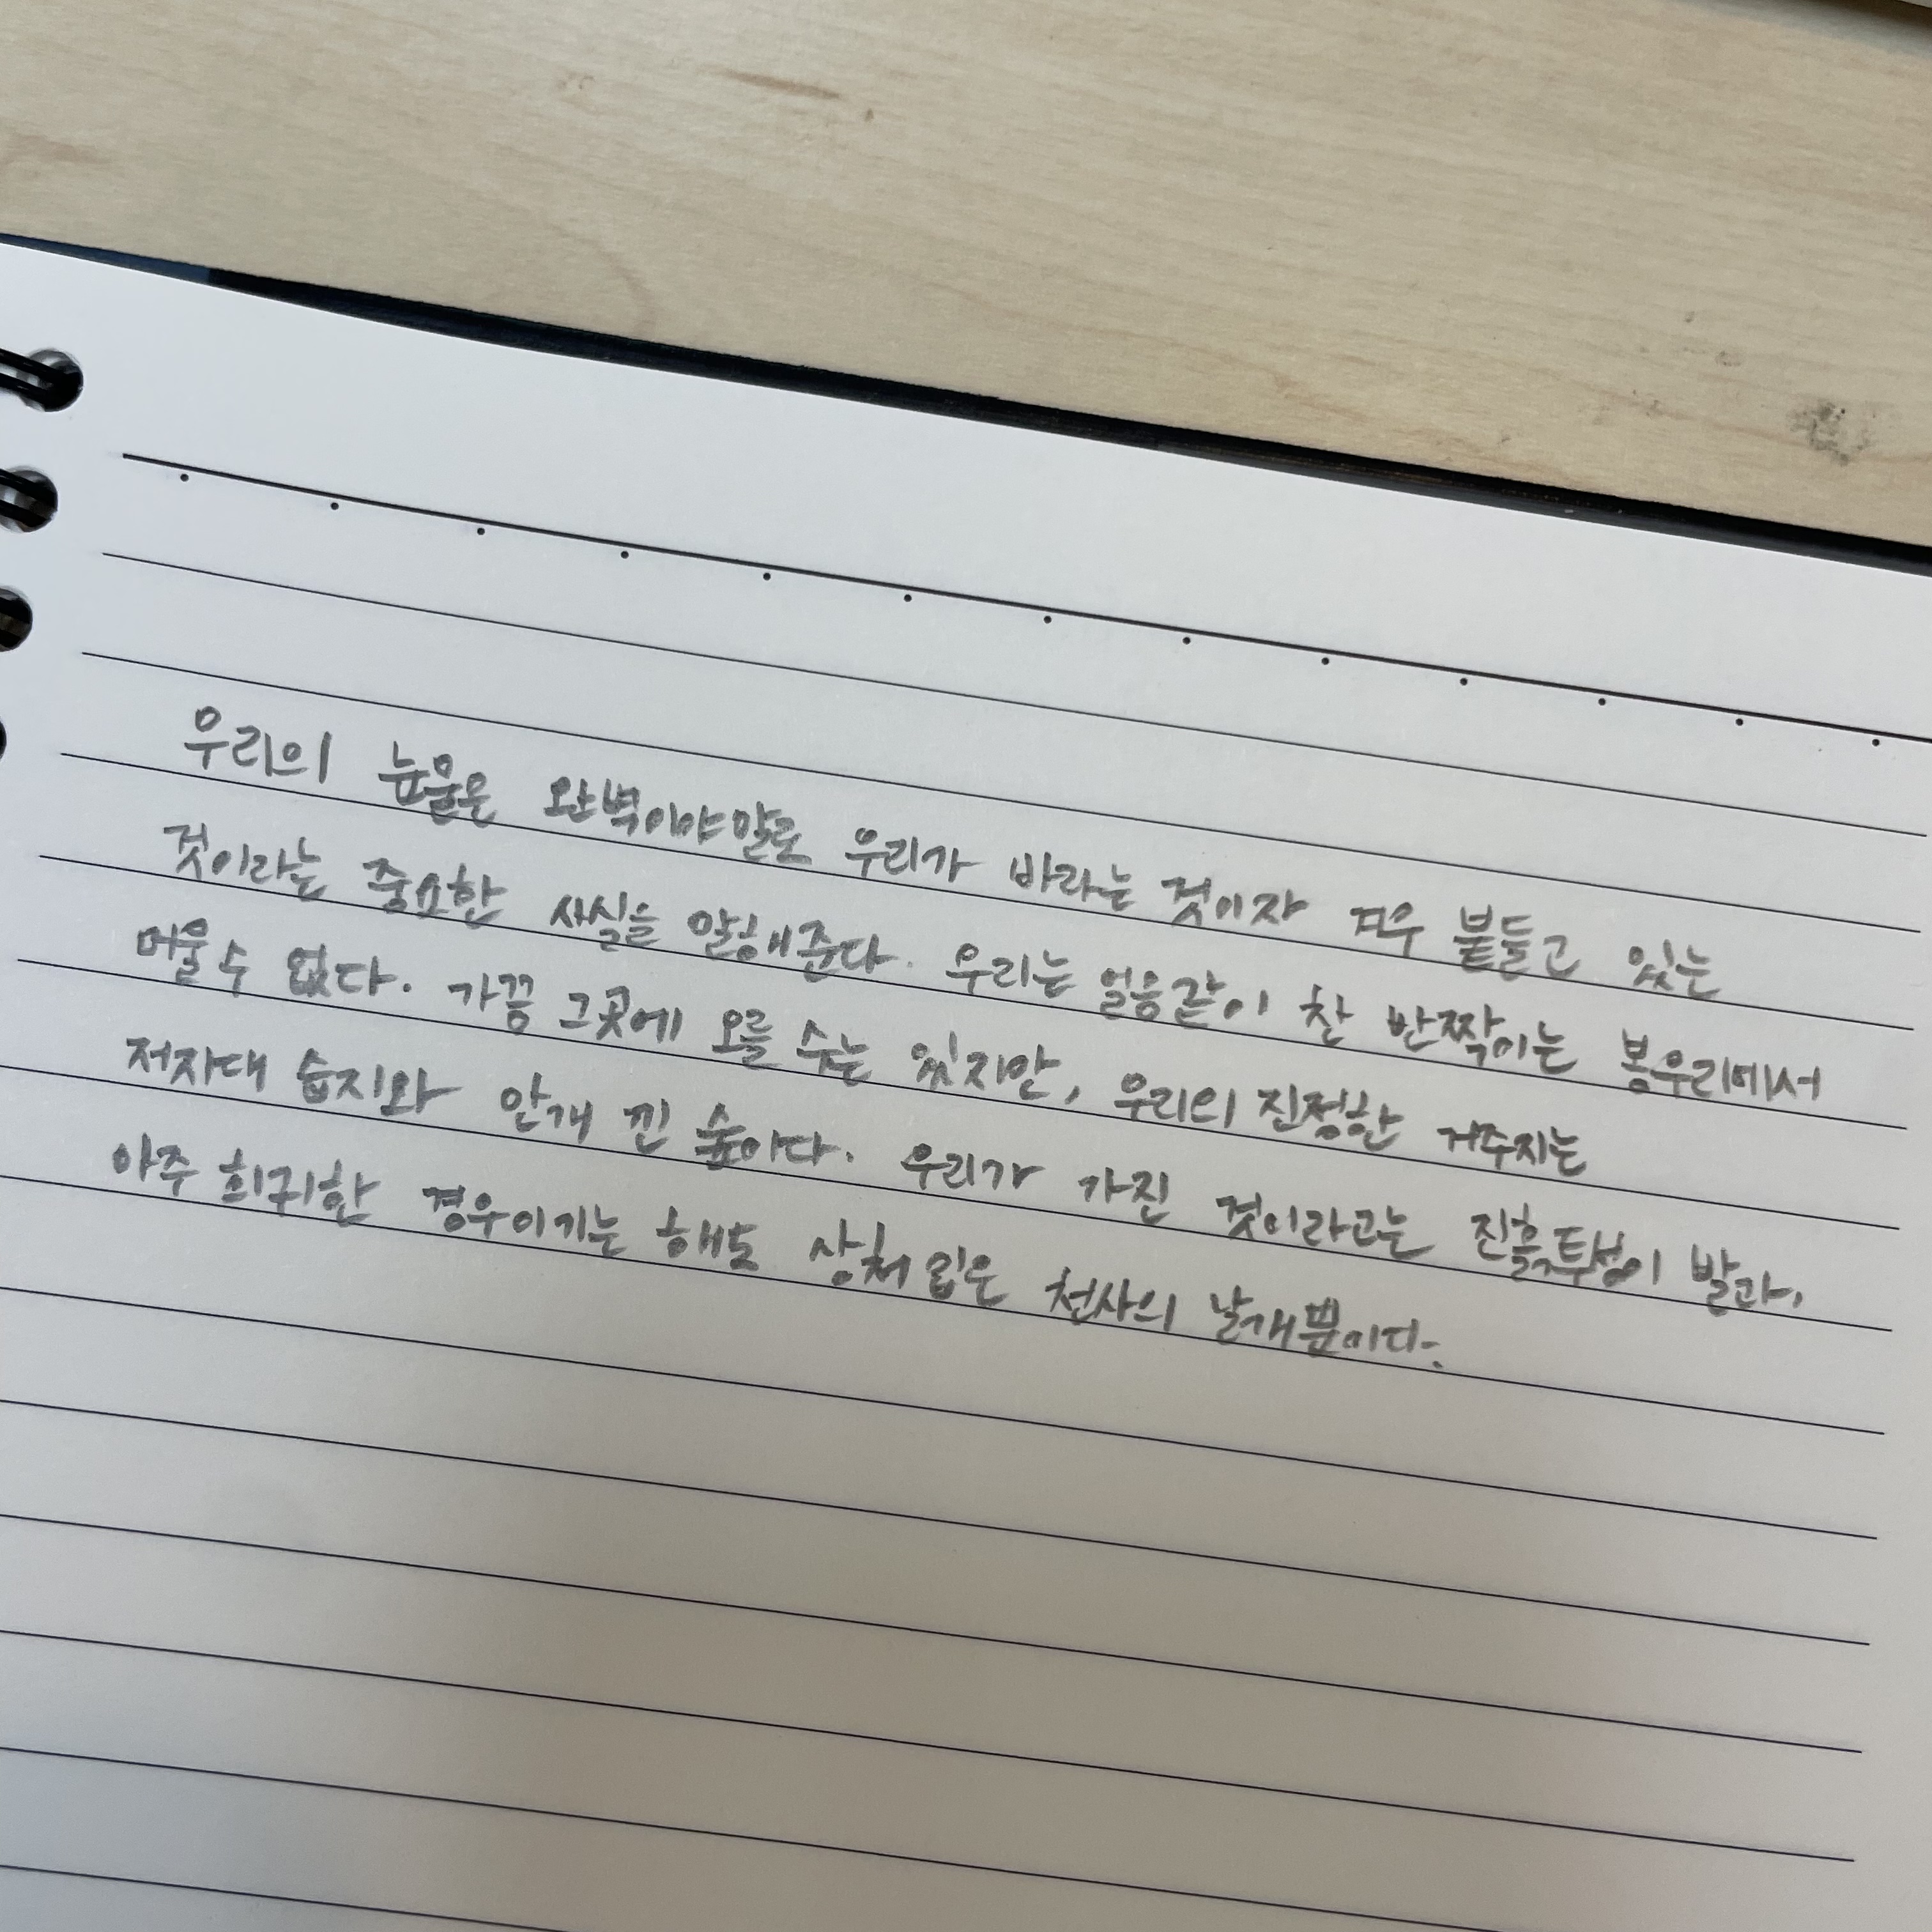 우리의 눈물은 완벽이야말로 우리가 바라는 것이자 겨우 붙들고 있는
것이라는 중요한 사실을 말해준다. 우리는 얼음같이 찬 반짝이는 봉우리에서
머물 수 없다. 가끔 그곳에 오를 수는 있지만, 우리의 진정한 거주지는
저지대 습지와 안개 낀 숲이다. 우리가 가진 것이라고는 진흙투성이 발과,
아주 희귀한 경우이기는 해도 상처 입은 천사의 날개뿐이다.